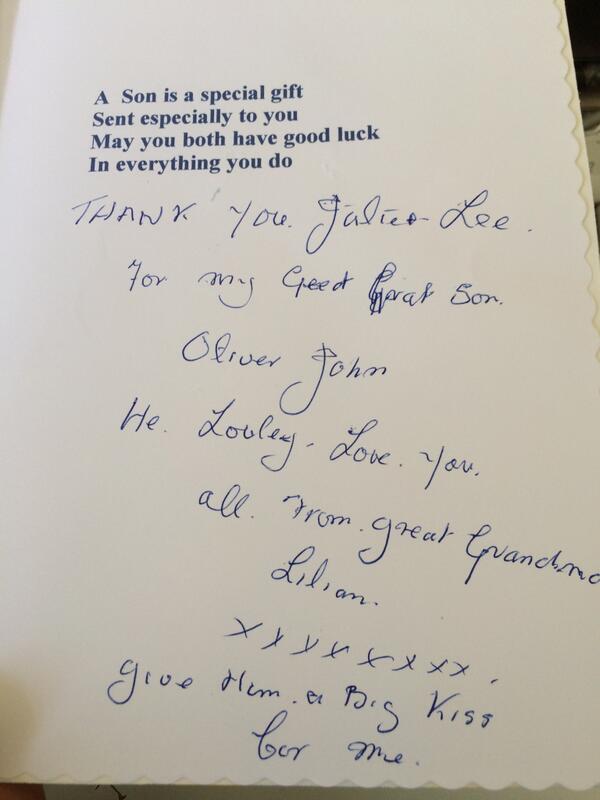 A Son is a special gift
Sent especially to you
May you both have good luck
In everything you do
THANK You. Lee.
For my Great Son.
Oliver John
He. Lovley - Love. You.
all. From. great Grandma
Lilian.
x x x x x x x x .
give Him. a Big Kiss
for me.